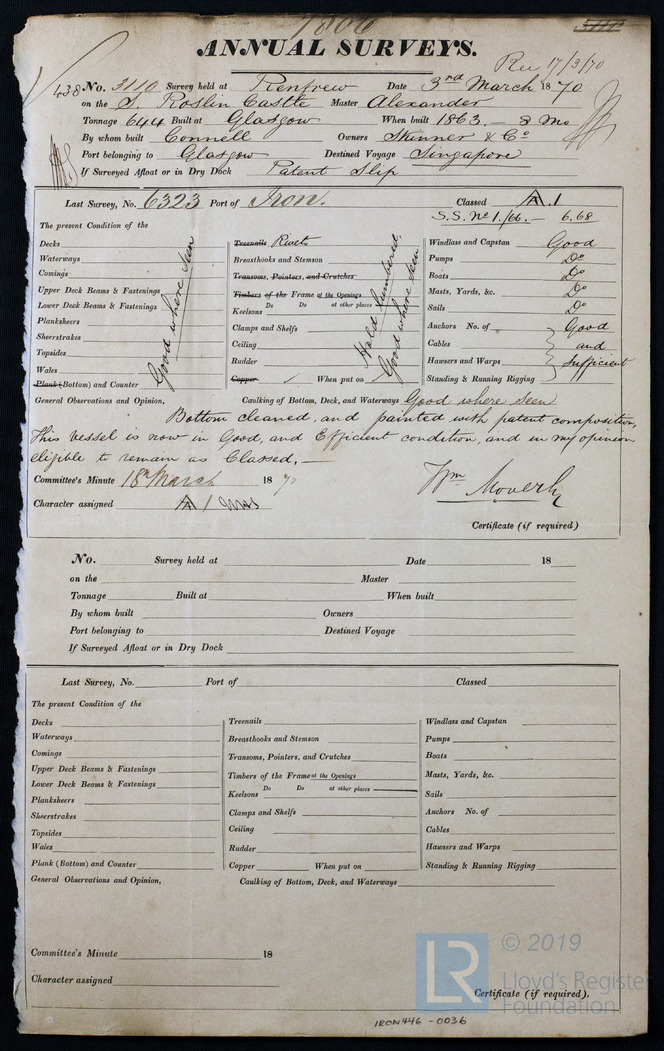 1866
3110
ANNUAL SURVEYS.
Rec 17/3/70
438 No. 3110 Survey held at Renfrew Date 3rd March 1870
on the S. Roslin Castle Master Alexander
Tonnage 644 Built at Glasgow When built 1863. — 8 Mo
By whom built Connell Owners Skinner & Co
Port belonging to Glasgow Destined Voyage Singapore
If Surveyed Afloat or in Dry Dock Patent Slip
Last Survey, No. 6323 Port of Iron. Classed A.1
S.S. No 1./66. — 6.68
The present Condition of the
Decks
Waterways
Comings
Upper Deck Beams & Fastenings
Lower Deck Beams & Fastenings
Planksheers
Sheerstrakes
Topsides
Wales
Plank (Bottom) and Counter
Good where seen
Treenails Rivets
Breasthooks and Stemson
Transoms, Pointers, and Crutches
Timbers of the Frame at the Openings
Do Do at other places
Keelsons
Clamps and Shelfs
Ceiling
Rudder
Copper When put on
Hold lumbered.
Good where seen
Windlass and Capstan Good
Pumps Do
Boats Do
Masts, Yards, &c. Do
Sails Do
Anchors No. of Good
Cables and
Hawsers and Warps Sufficient
Standing & Running Rigging
General Observations and Opinion, Caulking of Bottom, Deck, and Waterways Good where seen
Bottom cleaned, and painted with patent composition,
This vessel is now in Good, and Efficient condition, and in my opinion
eligible to remain as Classed. —
Committee's Minute 18th March 1870
Character assigned A 1
Certificate (if required)
No. Survey held at Date 18
on the Master
Tonnage Built at When built
By whom built Owners
Port belonging to Destined Voyage
If Surveyed Afloat or in Dry Dock
Last Survey, No. Port of Classed
The present Condition of the
Decks
Waterways
Comings
Upper Deck Beams & Fastenings
Lower Deck Beams & Fastenings
Planksheers
Sheerstrakes
Topsides
Wales
Plank (Bottom) and Counter
Treenails
Breasthooks and Stemson
Transoms, Pointers, and Crutches
Timbers of the Frame at the Openings
Do Do at other places
Keelsons
Clamps and Shelfs
Ceiling
Rudder
Copper When put on
Windlass and Capstan
Pumps
Boats
Masts, Yards, &c.
Sails
Anchors No. of
Cables
Hawsers and Warps
Standing & Running Rigging
General Observations and Opinion, Caulking of Bottom, Deck, and Waterways
Committee's Minute 18
Character assigned
Certificate (if required).
LR © 2019
Lloyd's Register
Foundation
IRON446-0036